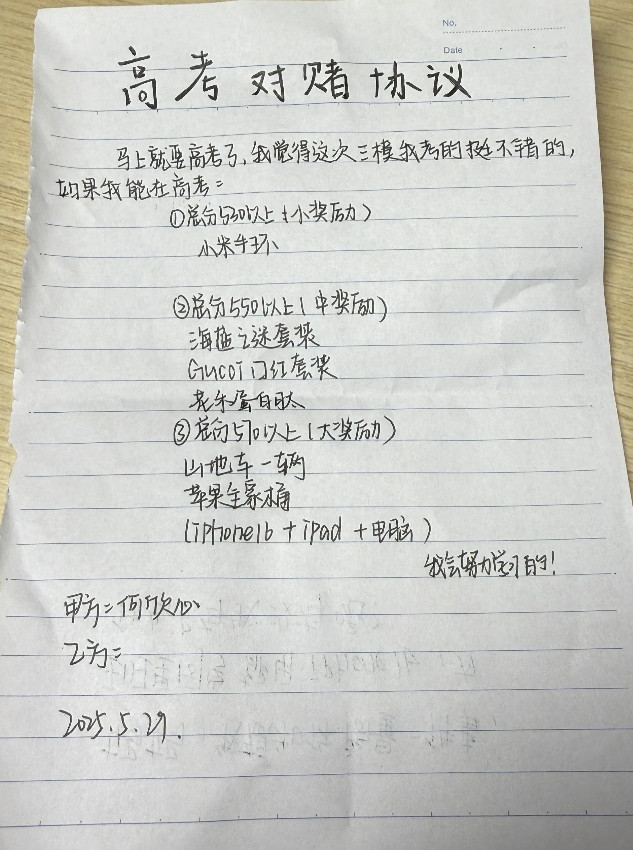 No.
Date
高考对赌协议
马上就要高考了,我觉得这次三模我考的挺不错的,
如果我能在高考:
①总分530以上(小奖励)
小米手环
②总分550以上(中奖励)
海蓝之谜套装
Gucci口红套装
花朵蛋白肽
③总分570以上(大奖励)
山地车一辆
苹果全家桶
(iphone16+ipad+电脑)
我会努力学习的!
甲方:何欣心
乙方:
2025.5.29.